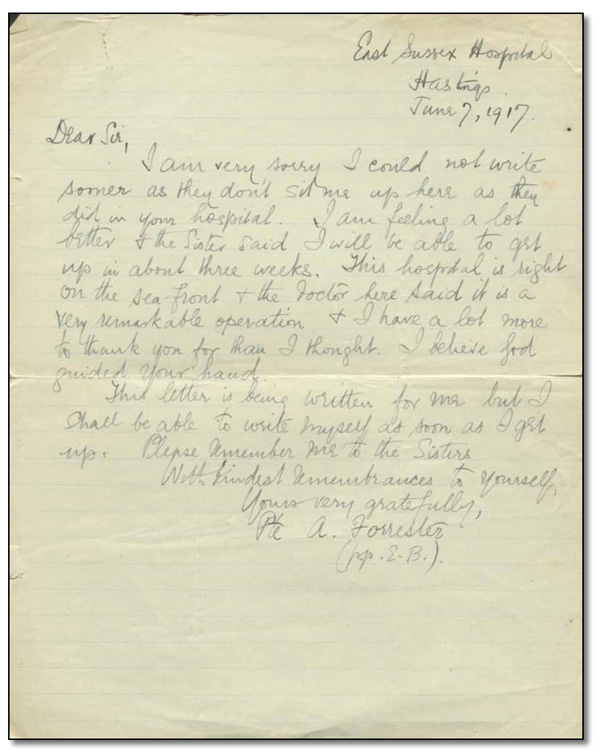 East Sussex Hospital
Hastings.
June 7, 1917.
Dear Sir,
I am very sorry I could not write
sooner as they don't sit me up here as they
did in your hospital. I am feeling a lot
better & the Sister said I will be able to get
up in about three weeks. This hospital is right
on the sea-front & the doctor here said it is a
very remarkable operation & I have a lot more
to thank you for than I thought. I believe God
guided your hand.
This letter is being written for me but I
shall be able to write myself as soon as I get
up. Please remember me to the Sisters
With kindest remembrances to yourself,
Yours very gratefully,
Pte A. Forrester
(pp. E.B.).